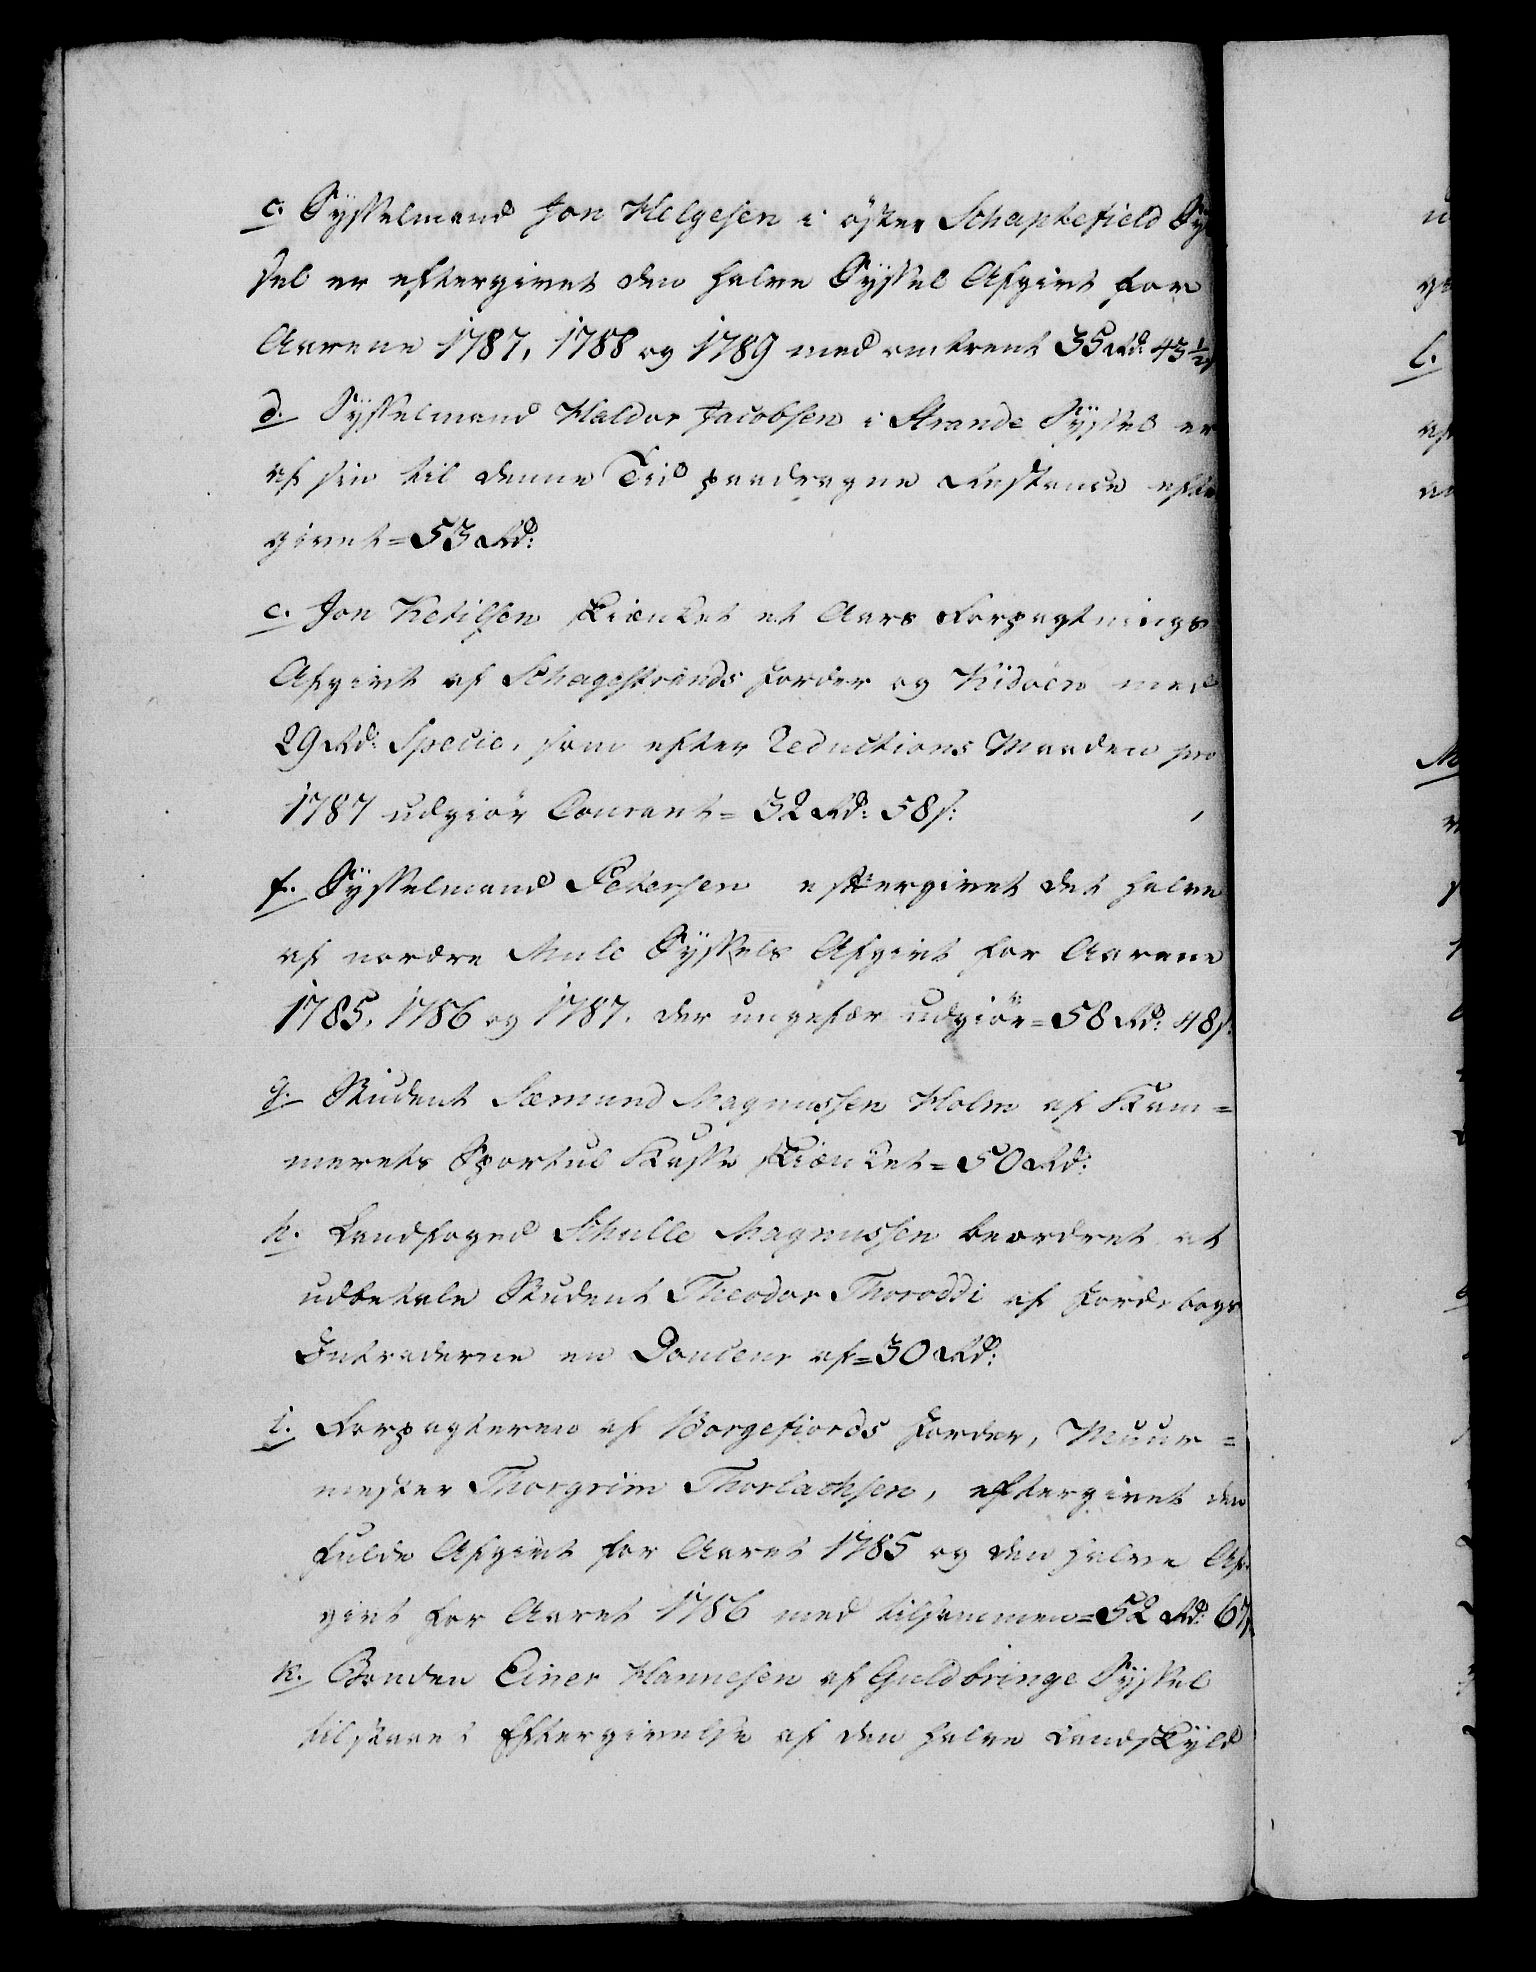 c. Sÿsselmand Jon Helgesen i öster Schaptefield Sÿ
sel er eftergivet den halve Sÿssel Afgivt for
Aarene 1787, 1788 og 1789 med omtrent 35 Rd: 43½
d. Sÿsselmand Haldor Jacobsen i Strande Sÿssel er
af sin til denne Tid paadragne Restance efter
givet = 53 Rd:
e. Jon Ketilsen skienket et Aars Forpagtnings
Afgivt af Schagestrands Jorder og Kidöen med
29 Rd: Specie, som efter Reductions Maaden pro
1787 udgiör Courant = 32 Rd: 58 s:
f. Sÿsselmand Petersen eftergivet det halve
af nordre Mule Sÿssels Afgivt for Aarene
1785, 1786 og 1787. der ungefær udgiör = 58 Rd: 48 s:
g. Student Sæmund Magnussen Holm af Kam=
merets Sportul Kasse skienket = 50 Rd:
h. Landfoged Schulle Magnussen beordret at
udbetale Student Theodor Thoroddi af Jordebogs
Intraderne en Douceur af = 30 Rd:
i. Forpagteren af Borgefiords Jorder, Muur=
mester Thorgrim Thorlachsen, eftergivet den
fulde Afgivt for Aaret 1785 og den halve Af
givt for Aaret 1786 med tilsammen = 52 Rd: 67 s
k. Bonden Einer Hannesen af Guldbringe Sÿssel
tilstaaet Eftergivelse af den halve Landskÿld